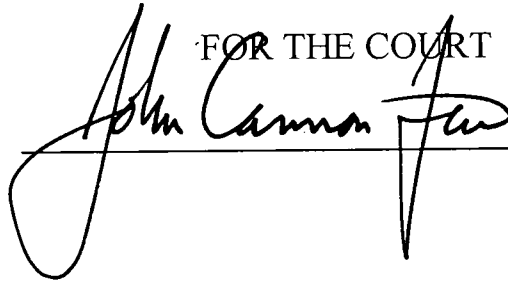 FOR THE COURT
John Cannon Few